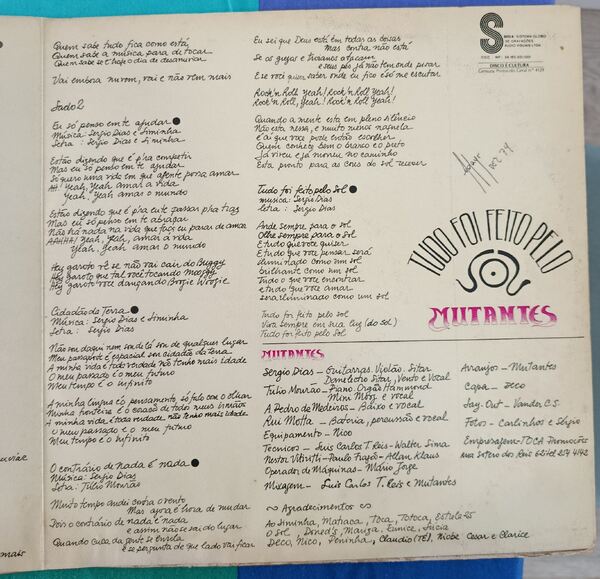 Quem sabe tudo fica como está
Quem sabe a música para de tocar
Quem sabe é hoje o dia de desanuviar
Vai embora nuvem, vai e não vem mais
Lado 2
Eu só penso em te ajudar
Música: Sergio Dias e Liminha
Letra: Sergio Dias e Liminha
Estão dizendo que é p'ra competir
Mas eu só penso em te ajudar
Só quero uma vida em que agente possa amar
AH! Yeah, Yeah, amar a vida
Yeah, Yeah amar o mundo
Estão dizendo que é p'ra eu te passar pra traz
Mas eu só penso em te abraçar
Não há nada na vida que faça eu parar de amar
AAHHH! Yeah, Yeah, amar a vida
Yeah, Yeah amar o mundo
Hey garoto vê se não vai cair do Buggy
Hey garoto que tal você tocando
Hey garoto você dançando Boogie Woogie
Cidadão da Terra
Música: Sergio Dias e Liminha
Letra: Sergio Dias
Não sou daqui nem sou de lá sou de qualquer lugar
Meu passaporte é espacial sou cidadão da terra
A minha vida é toda verdade não tenho mais idade
O meu passado é o meu futuro
Meu tempo é o infinito
A minha lingua é o pensamento, só falo com o olhar
Minha fronteira é o coração de todos meus irmãos
A minha vida é toda verdade não tenho mais idade
O meu passado é o meu futuro
Meu tempo é o infinito
O contrário de nada é nada
Música: Sergio Dias
Letra: Túlio Mourão
Muito tempo andei contra o vento
Mas agora é hora de mudar
Pois o contrário de nada é nada
e assim não se sai do lugar
Quando a cuca da gente se enrola
e se pergunta de que lado vai ficar
Eu sei que Deus está em todas as coisas
Mas contra não está
Se os gregos e troianos atacam
e teus pés já não tem onde pisar
E se você quiser saber onde eu fico é só me escutar
Rock'n Roll Yeah! Rock'n Roll Yeah!
Rock'n Roll, Yeah! Rock'n Roll Yeah!
Quando a mente está em pleno silêncio
Não está nessa, e muito menos naquela
e aí que você pode então escolher
Quem conhece bem o branco e o preto
Já viveu e já morreu no caminho
Está pronto para as cores do sol receber
Tudo foi feito pelo Sol
musica: Sergio Dias
letra: Sergio Dias
Ande sempre para o sol
Olhe sempre para o sol
E tudo que você quiser
E tudo que você pensar será
iluminado como um sol
brilhante como um sol
Tudo o que você encontrar
e tudo que você amar
será iluminado como um sol
Tudo foi feito pelo sol
Viva sempre em sua luz (do sol)
Tudo foi feito pelo sol
SIGLA SISTEMA GLOBO
DE GRAVAÇÕES
AUDIO VISUAIS LTDA
DISCO É CULTURA
DEZ 74
TUDO FOI FEITO PELO SOL
MUTANTES
MUTANTES
Sergio Dias - Guitarras, Violão, Sitar
Vento e Vocal
Túlio Mourão - Piano, Orgão Hammond
Mini Moog e vocal
A. Pedro de Medeiros - Baixo e vocal
Rui Motta - Bateria, percussão e vocal
Equipamento - Nico
Tecnicos - Luis Carlos T. Reis - Walter Lima
Nestor Vitiritti - Paulo Frazão - Allan Klaus
Operador de Máquinas - Mário Jorge
Mixagem - Luis Carlos T. Reis e Mutantes
Agradecimentos
Ao Liminha, Matraca, Tora, Totoca, Estula 25
O Sol, Marisa, Eunice, Lucia
Deco, Nico, Peninha, Claudio (TE), Niobe Cesar e Clarice
Arranjos - Mutantes
Capa - Deco
Lay-Out - Vander C.S.
Fotos - Carlinhos e Sérgio
Empresagem - TOCA Promoções
uviar
mais